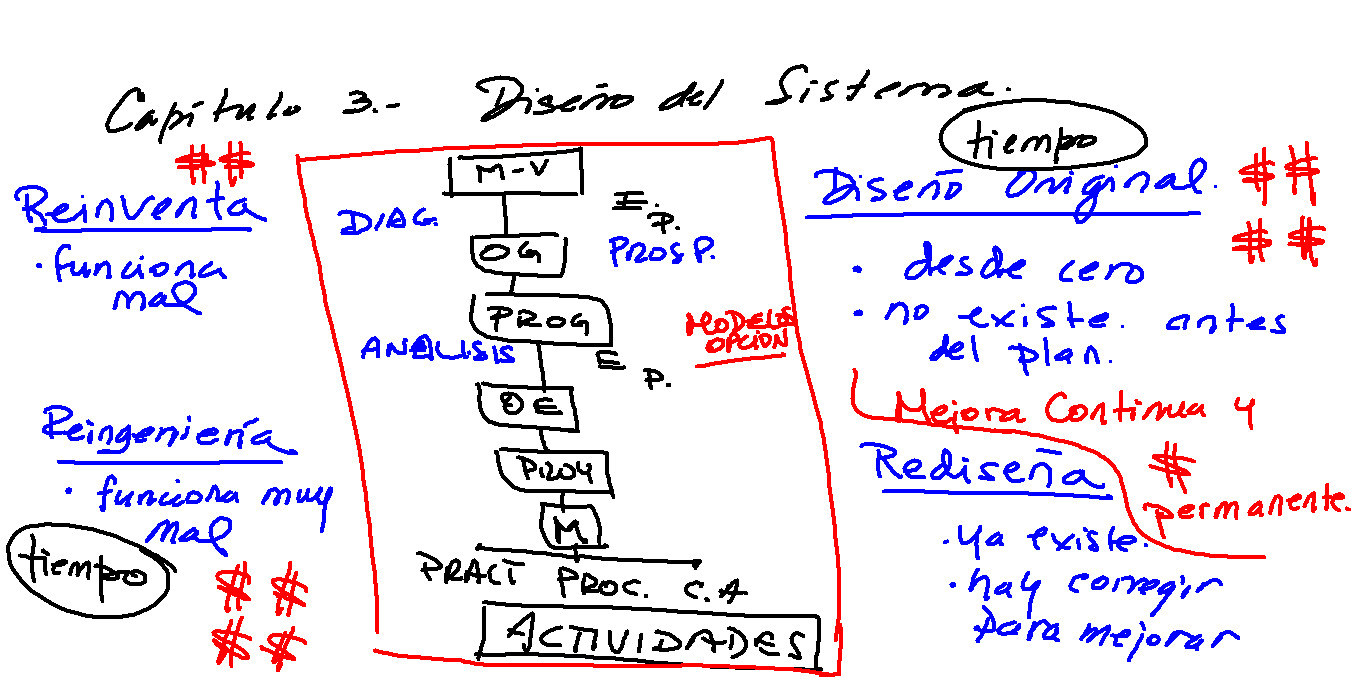 Capítulo 3.- Diseño del Sistema.
##
Reinventa
· funciona
mal
Reingeniería
· funciona muy
mal
tiempo
##
##
M-V
DIAG.
E.
P.
PROSP.
OG
PROG
MODELOS
OPCIÓN
ANÁLISIS
E
P.
OE
PROY
M
PRACT PROC. C.A
ACTIVIDADES
tiempo
Diseño Original.
##
##
· desde cero
· no existe. antes
del plan.
Mejora Continua y
#
permanente.
Rediseña
· ya existe.
· hay corregir
para mejorar